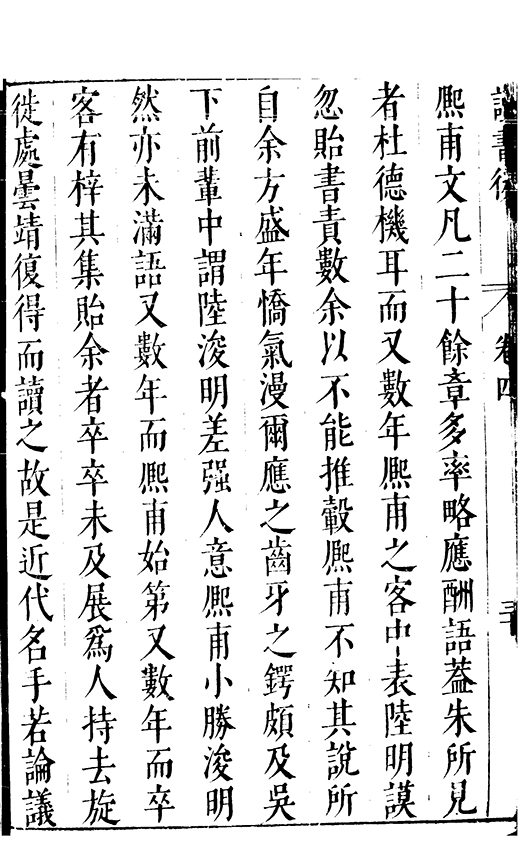 讀書後
卷四
熈甫文凡二十餘章多率略應酬語蓋朱所見
者杜德機耳而又數年熈甫之客中表陸明謨
忽貽書責數余以不能推轂熈甫不知其說所
自余方盛年憍氣漫爾應之齒牙之鍔頗及吳
下前輩中謂陸浚明差强人意熈甫小勝浚明
然亦未滿語又數年而熈甫始第又數年而卒
客有梓其集貽余者卒卒未及展爲人持去旋
徙處曇靖復得而讀之故是近代名手若論議